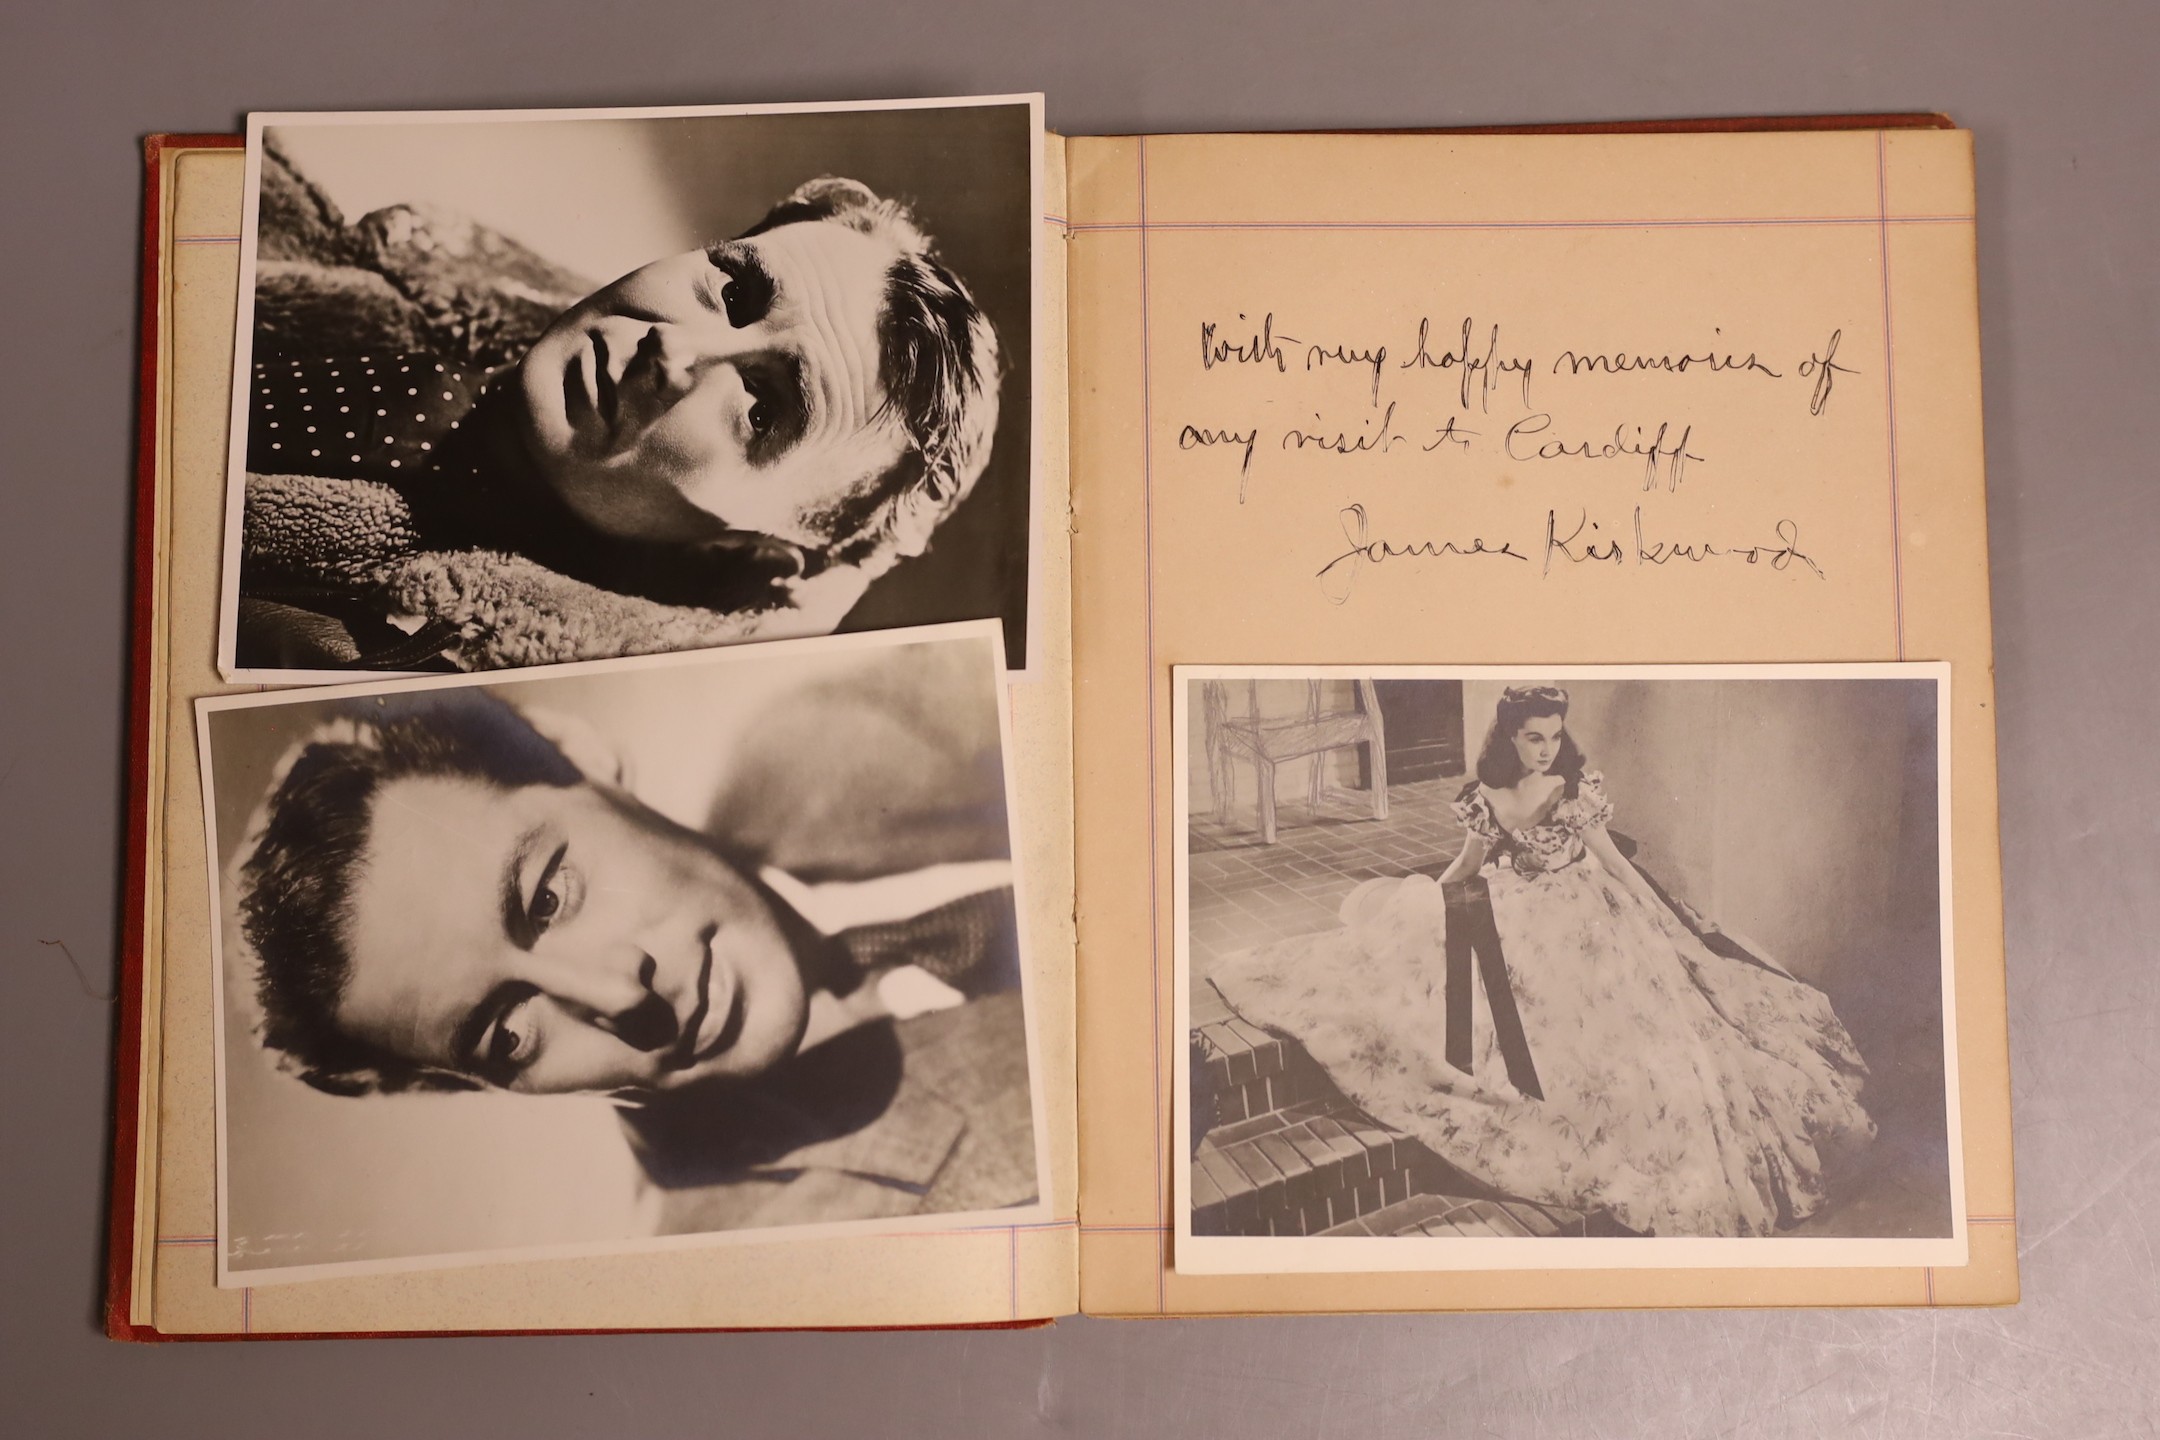 With very happy memories of
my visit to Cardiff
James Kirkwood